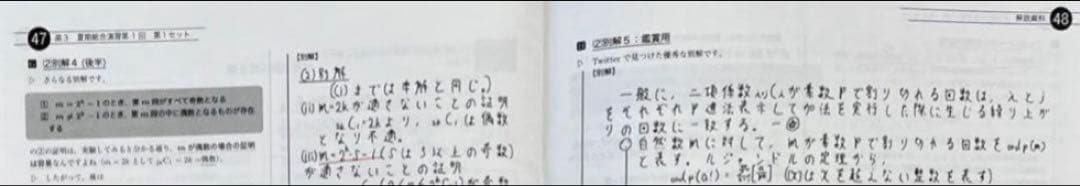 47 高3 夏期総合演習第1回 第1セット
②別解4(後半)
▷ さらなる別解です。
① m = 2^k − 1 のとき、第 m 段がすべて奇数となる
② m ≠ 2^k − 1 のとき、第 m 段の中に偶数となるものが存在
する
の②の証明は、実験してみると分かる通り、m が偶数の場合の証明
は容易なんですよね(m = 2k として 2kC1 = 2k = 偶数)。
▷ したがって、後は
【別解】
(3)別解
((i)までは本解と同じ。)
(ii) m=2kが適さないことの証明
2kC1=2kより、2kC1は偶数
となり不適。
(iii) m=2^k·S−1(Sは3以上の奇数)
が適さないことの証明
解説資料 48
②別解5:鑑賞用
▷ Twitter で見つけた優秀な別解です。
【別解】
一般に、二項係数 が素数Pで割り切れる回数は、 と j
をそれぞれP進法表示して加法を実行した際に生じる繰り上が
りの回数に一致する。
自然数mに対して、mが素数Pで割り切れる回数をordp(m)
と表す。ルジャンドルの定理から、
ordp(a!)= ([x]はxを超えない整数を表す)